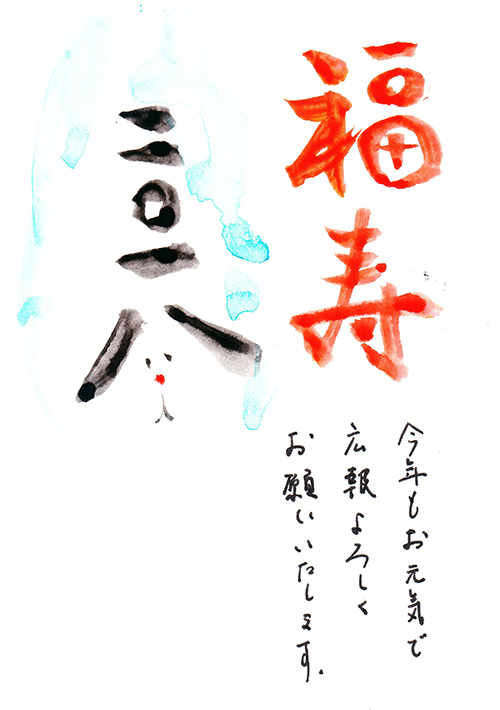 福寿
二〇一八
今年もお元気で
広報よろしく
お願いいたします。